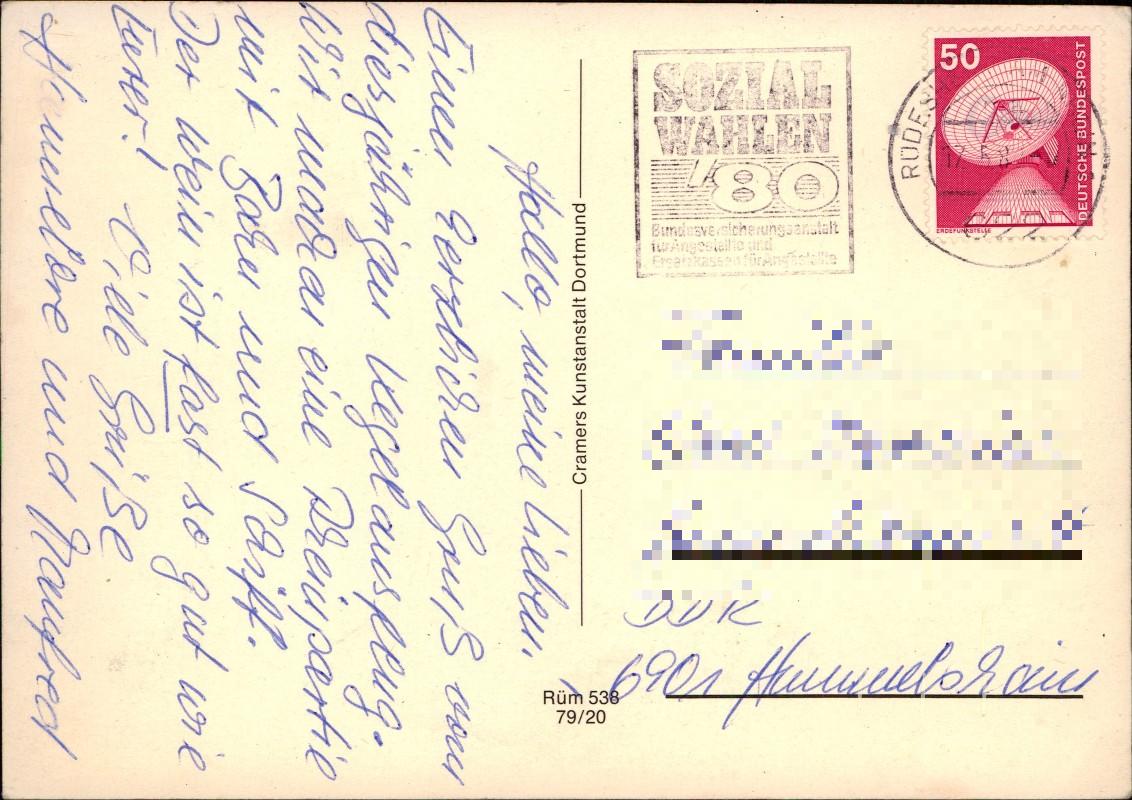 Hallo, meine Lieben,
Einen herzlichen Gruß vom
diesjährigen Kegelausflug.
Wir machen eine Dreipartie
mit Bahn und Schiff.
Der Wein ist fast so gut wie
Eurer! Viele Grüße
Hannelore und Manfred
Cramers Kunstanstalt Dortmund
Rüm 538
79/20
SOZIAL
WAHLEN
'80
Bundesversicherungsanstalt
für Angestellte und
Ersatzkassen für Angestellte
RÜDES
50
DEUTSCHE BUNDESPOST
ERDEFUNKSTELLE
DDR
6901 Hummelshain